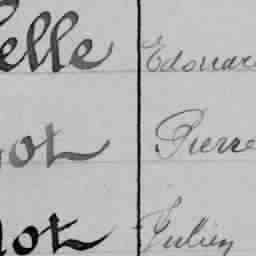 elle Edouar
ot Pierre
ot Julien